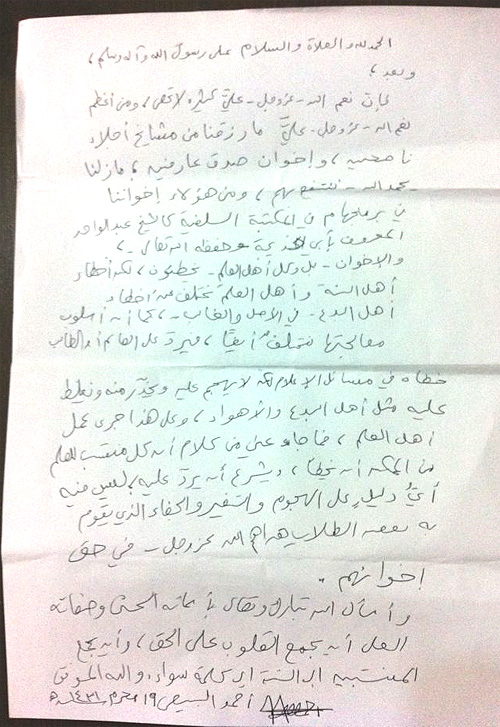 الحمد لله والصلاة والسلام على رسول الله وآله وسلم،
وبعد،
فإن نعم الله - عز وجل - عليّ كثيرة لا تحصى، ومن أعظم
نعم الله - عز وجل - عليّ ما رزقنا من مشايخ أجلاء
ناصحين، وإخوان صدق عارفين، ما زلنا
- بحمد الله - ننتفع بهم، ومن هؤلاء إخواننا
في برمنجهام في المكتبة السلفية كالشيخ عبد الواحد
المعروف بأبي خديجة حفظه الله تعالى،
والإخوان - بل وكل أهل العلم - يخطئون، لكن أخطاء
أهل السنة وأهل العلم تختلف عن أخطاء
أهل البدع - في الأصل والغالب -، كما أن أسلوب
معالجتها تختلف أيضًا، فيردّ على العالم أو الطالب
خطأه في مسائل الإعلام لكن لا يهجم عليه ويحذّر منه ويغلظ
عليه مثل أهل البدع والأهواء، وعلى هذا جرى عمل
أهل العلم، فما جاء عني من كلام أن كل منتسب للعلم
من الممكن أن يخطأ، ويشرع أن يردّ عليه، ليس فيه
أيُّ دليلٍ على الهجوم والتنفير والجفاء الذي يقوم
به بعض الطلاب هداهم الله عز وجل - في حق
إخوانهم.
وأسأل الله تبارك وتعالى بأسمائه الحسنى وصفاته
العلى أن يجمع القلوب على الحق، وأن يجمع
المنتسبين إلى السنة إلى كلمة سواء، والله الموفق
أحمد السبيعي ١٩ محرم ١٤٣١ هـ